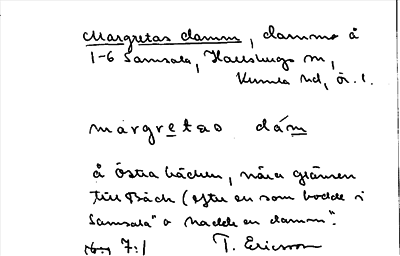 Margretas damm, damm å
1-6 Samsala, Hallsbergs sn,
Kumla hd, Ör. l.
màrgretas dám
å Östra bäcken, nära gränsen
till Bäck (efter en som bodde i
Samsala "o hadde en damm".
7:1 T. Ericsson